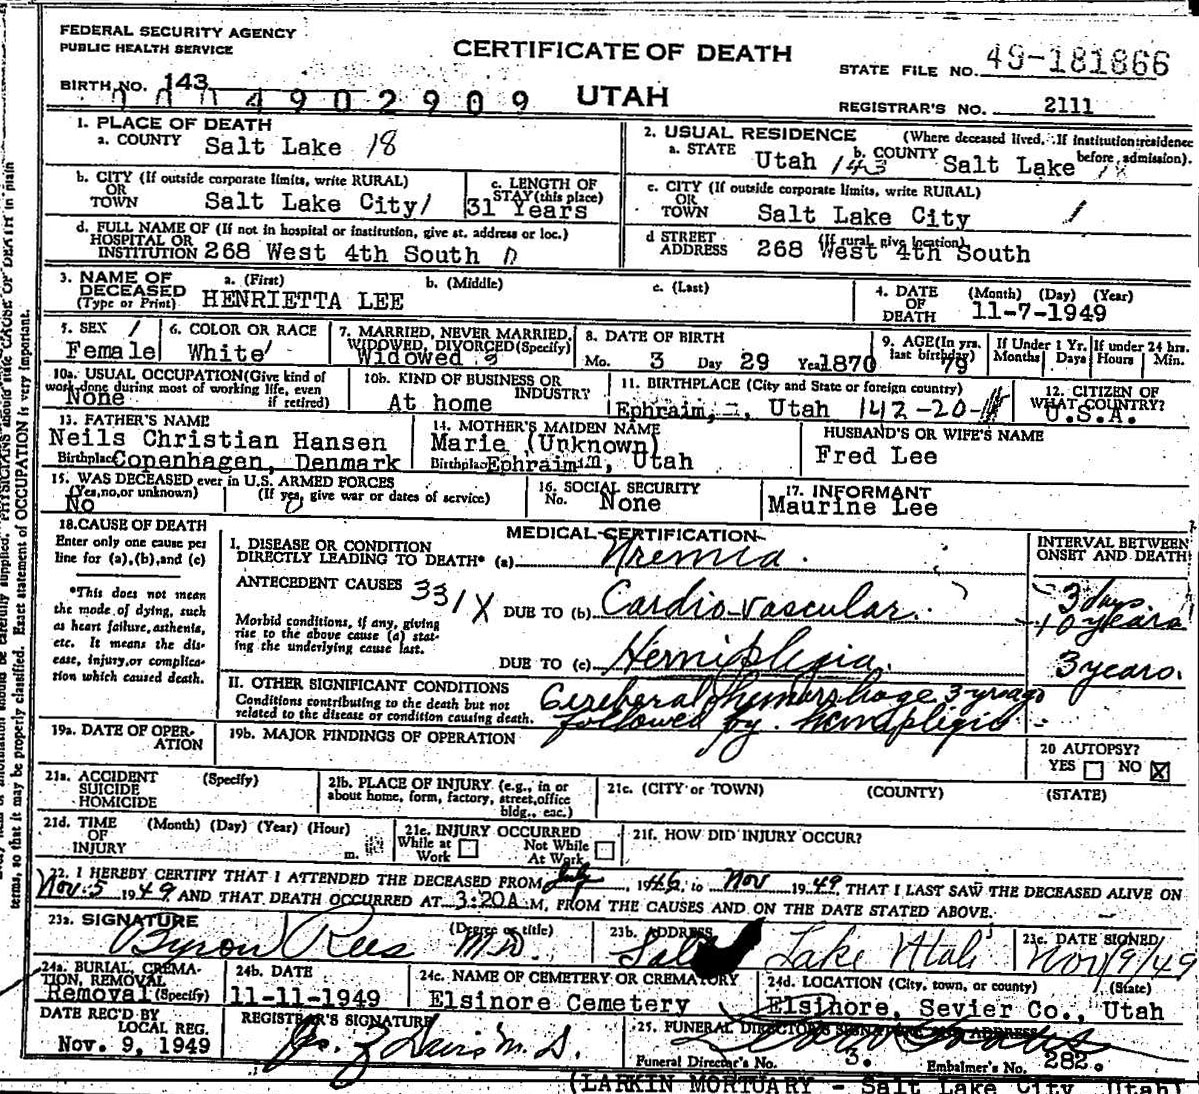 FEDERAL SECURITY AGENCY
PUBLIC HEALTH SERVICE
CERTIFICATE OF DEATH
STATE FILE NO. 49-181866
BIRTH NO. 143
4902909
UTAH
REGISTRAR'S NO. 2111
1. PLACE OF DEATH
a. COUNTY Salt Lake 18
2. USUAL RESIDENCE (Where deceased lived. If institution: residence before admission).
a. STATE Utah 143 b. COUNTY Salt Lake 18
b. CITY (If outside corporate limits, write RURAL)
OR TOWN Salt Lake City /
c. LENGTH OF STAY (this place)
31 Years
c. CITY (If outside corporate limits, write RURAL)
OR TOWN Salt Lake City /
d. FULL NAME OF (If not in hospital or institution, give st. address or loc.)
HOSPITAL OR INSTITUTION 268 West 4th South 0
d STREET ADDRESS (If rural, give location)
268 West 4th South
3. NAME OF DECEASED (Type or Print)
a. (First) b. (Middle) c. (Last)
HENRIETTA LEE
4. DATE OF DEATH (Month) (Day) (Year)
11-7-1949
5. SEX /
Female
6. COLOR OR RACE
White
7. MARRIED, NEVER MARRIED, WIDOWED, DIVORCED (Specify)
Widowed
8. DATE OF BIRTH
Mo. 3 Day 29 Year 1870
9. AGE (In yrs. last birthday)
79
If Under 1 Yr. Months Days
If under 24 hrs. Hours Min.
10a. USUAL OCCUPATION (Give kind of work done during most of working life, even if retired)
None
10b. KIND OF BUSINESS OR INDUSTRY
At home
11. BIRTHPLACE (City and State or foreign country)
Ephraim, Utah 142-20-
12. CITIZEN OF WHAT COUNTRY?
U.S.A.
13. FATHER'S NAME
Neils Christian Hansen
Birthplace Copenhagen, Denmark
14. MOTHER'S MAIDEN NAME
Marie (Unknown)
Birthplace Ephraim, Utah
HUSBAND'S OR WIFE'S NAME
Fred Lee
15. WAS DECEASED ever in U.S. ARMED FORCES
(Yes, no, or unknown) (If yes, give war or dates of service)
No 0
16. SOCIAL SECURITY
No. None
17. INFORMANT
Maurine Lee
18. CAUSE OF DEATH
Enter only one cause per line for (a), (b), and (c)
*This does not mean the mode of dying, such as heart failure, asthenia, etc. It means the disease, injury, or complication which caused death.
MEDICAL CERTIFICATION
INTERVAL BETWEEN ONSET AND DEATH
I. DISEASE OR CONDITION
DIRECTLY LEADING TO DEATH* (a) Uremia 3 days.
ANTECEDENT CAUSES 331X
DUE TO (b) Cardio-vascular. 10 years
Morbid conditions, if any, giving rise to the above cause (a) stating the underlying cause last.
DUE TO (c) Hemiplegia. 3 years.
II. OTHER SIGNIFICANT CONDITIONS
Conditions contributing to the death but not related to the disease or condition causing death.
Cerebral hemorrhage 3 yrs ago
followed by hemiplegia
19a. DATE OF OPERATION
19b. MAJOR FINDINGS OF OPERATION
20 AUTOPSY?
YES NO
21a. ACCIDENT SUICIDE HOMICIDE (Specify)
21b. PLACE OF INJURY (e.g., in or about home, form, factory, street, office bldg., etc.)
21c. (CITY or TOWN) (COUNTY) (STATE)
21d. TIME OF INJURY (Month) (Day) (Year) (Hour) m.
21e. INJURY OCCURRED
While at Work Not While At Work
21f. HOW DID INJURY OCCUR?
22. I HEREBY CERTIFY THAT I ATTENDED THE DECEASED FROM July, 1946, to Nov 1949, THAT I LAST SAW THE DECEASED ALIVE ON
Nov. 5 1949 AND THAT DEATH OCCURRED AT 3:20A M, FROM THE CAUSES AND ON THE DATE STATED ABOVE.
23a. SIGNATURE (Degree or title)
Byron Rees M.D.
23b. ADDRESS
Salt Lake Utah
23c. DATE SIGNED
Nov/9/49
24a. BURIAL, CREMATION, REMOVAL (Specify)
Removal
24b. DATE
11-11-1949
24c. NAME OF CEMETERY OR CREMATORY
Elsinore Cemetery
24d. LOCATION (City, town, or county) (State)
Elsinore, Sevier Co., Utah
DATE REC'D BY LOCAL REG.
Nov. 9, 1949
REGISTRAR'S SIGNATURE
M.D.
25. FUNERAL DIRECTOR'S SIGNATURE AND ADDRESS
Funeral Director's No. 3. Embalmer's No. 282.
(LARKIN MORTUARY - Salt Lake City, Utah)
terms, so that it may be properly classified. Exact statement of OCCUPATION is very important.